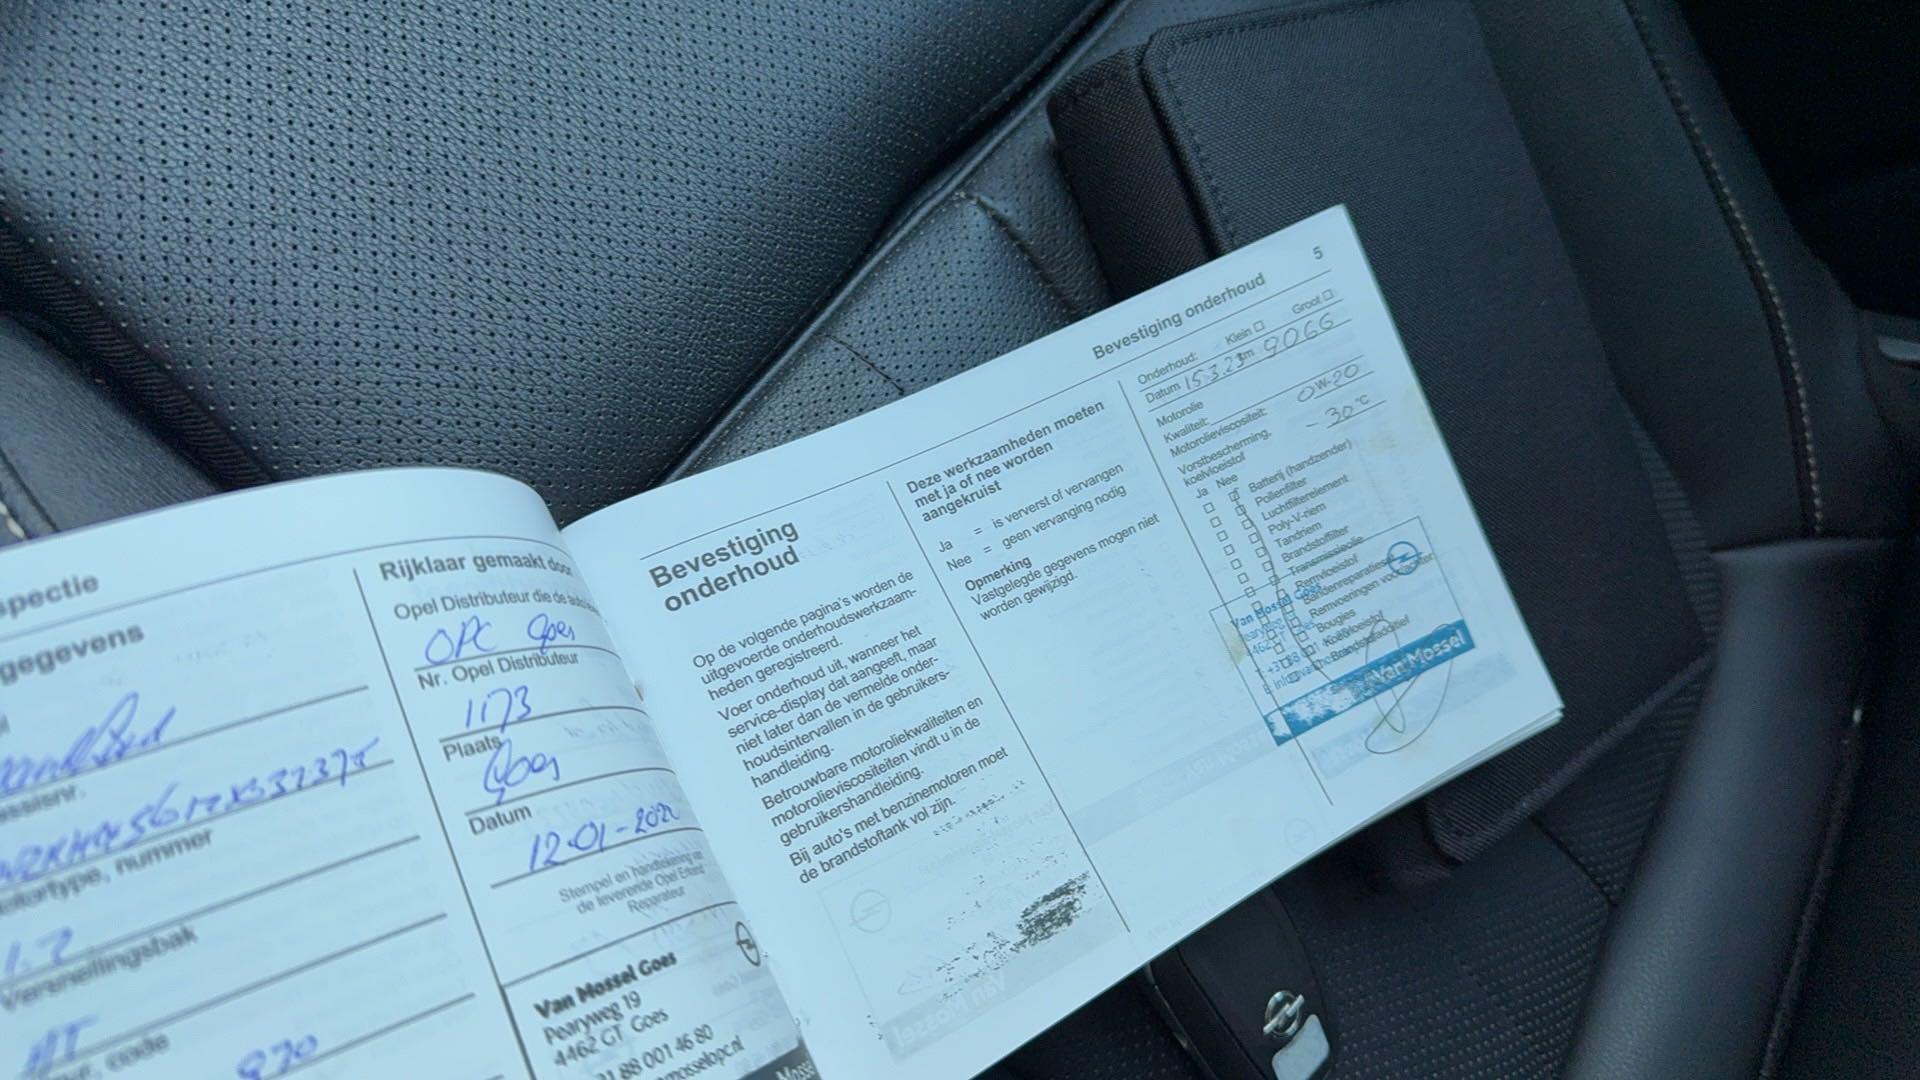 spectie
gegevens
ssienr.
otortype, nummer
1.2
Versnellingsbak
AT
code
870
Rijklaar gemaakt door
Opel Distributeur die de auto
OPC Goes
Nr. Opel Distributeur
1173
Plaats
Goes
Datum
12-01-2020
Stempel en handtekening van
de leverende Opel Erkend
Reparateur
Van Mossel Goes
Pearyweg 19
4462 GT Goes
31 88 001 46 80
mosselopc.nl
Bevestiging
onderhoud
Op de volgende pagina's worden de
uitgevoerde onderhoudswerkzaam-
heden geregistreerd.
Voer onderhoud uit, wanneer het
service-display dat aangeeft, maar
niet later dan de vermelde onder-
houdsintervallen in de gebruikers-
handleiding.
Betrouwbare motoroliekwaliteiten en
motorolieviscositeiten vindt u in de
gebruikershandleiding.
Bij auto's met benzinemotoren moet
de brandstoftank vol zijn.
Deze werkzaamheden moeten
met ja of nee worden
aangekruist
Ja = is ververst of vervangen
Nee = geen vervanging nodig
Opmerking
Vastgelegde gegevens mogen niet
worden gewijzigd.
Bevestiging onderhoud 5
Onderhoud: Klein Groot
Datum 15.3.23 km 9066
Motorolie
Kwaliteit:
Motorolieviscositeit: 0W-20
Vorstbescherming,
koelvloeistof -30°C
Ja Nee
Batterij (handzender)
Pollenfilter
Luchtfilterelement
Poly-V-riem
Tandriem
Brandstoffilter
Transmissieolie
Remvloeistof
Bandenreparatieset
Remvoeringen voor
Bougies
Koelvloeistof
Brandstofadditief
Van Mossel Goes
Van Mossel